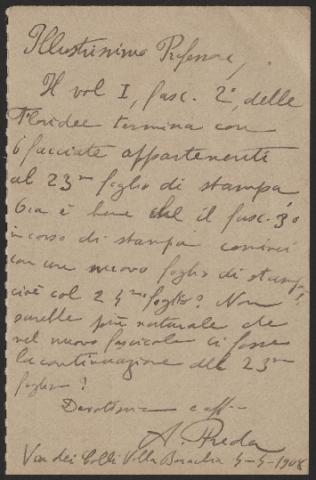 Illustrissimo Professore,
Il vol I, fasc. 2°, delle
Floridee termina con
6 facciate appartenenti
al 23mo foglio di stampa
Ora è bene che il fasc. 3°
in corso di stampa cominci
con un nuovo foglio di stampa,
cioè col 24mo foglio? Non
sarebbe più naturale che
nel nuovo fascicolo ci fosse
la continuazione del 23mo
foglio?
Devotissimo e aff.
A. Preda
Via dei Colli Villa 4-4-1908